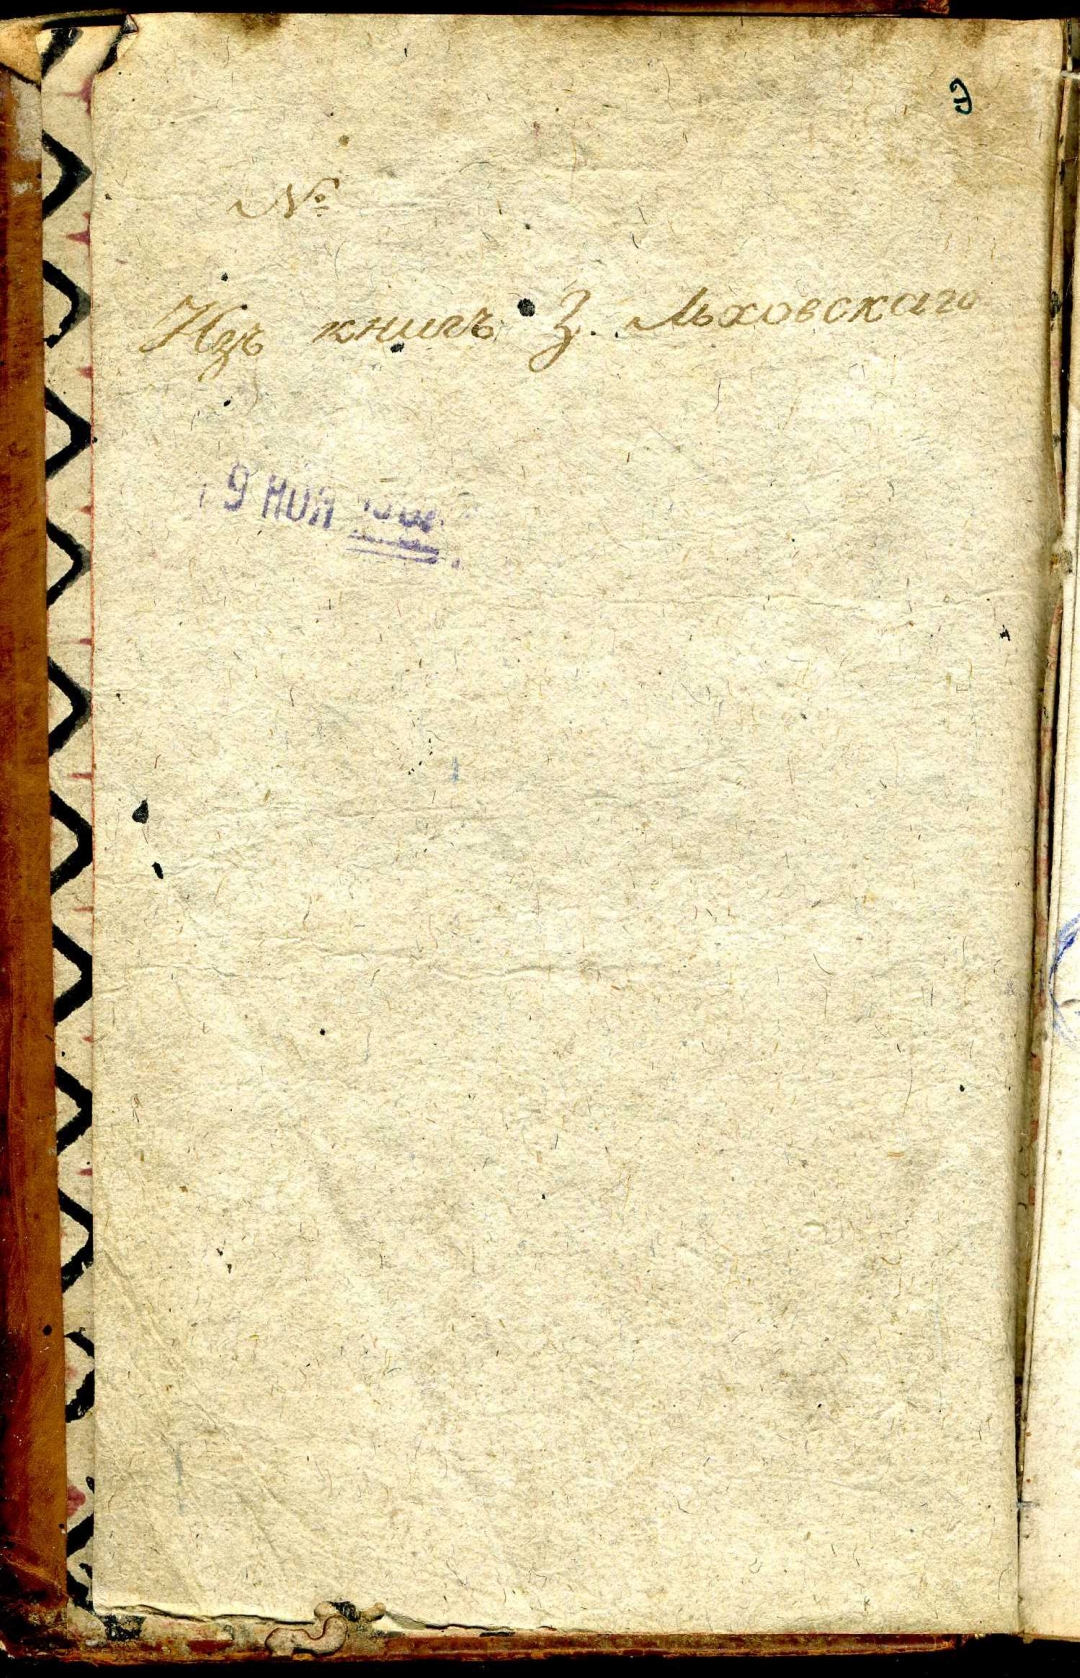 №
Изъ книгъ З. Льховскаго
9 НОЯ